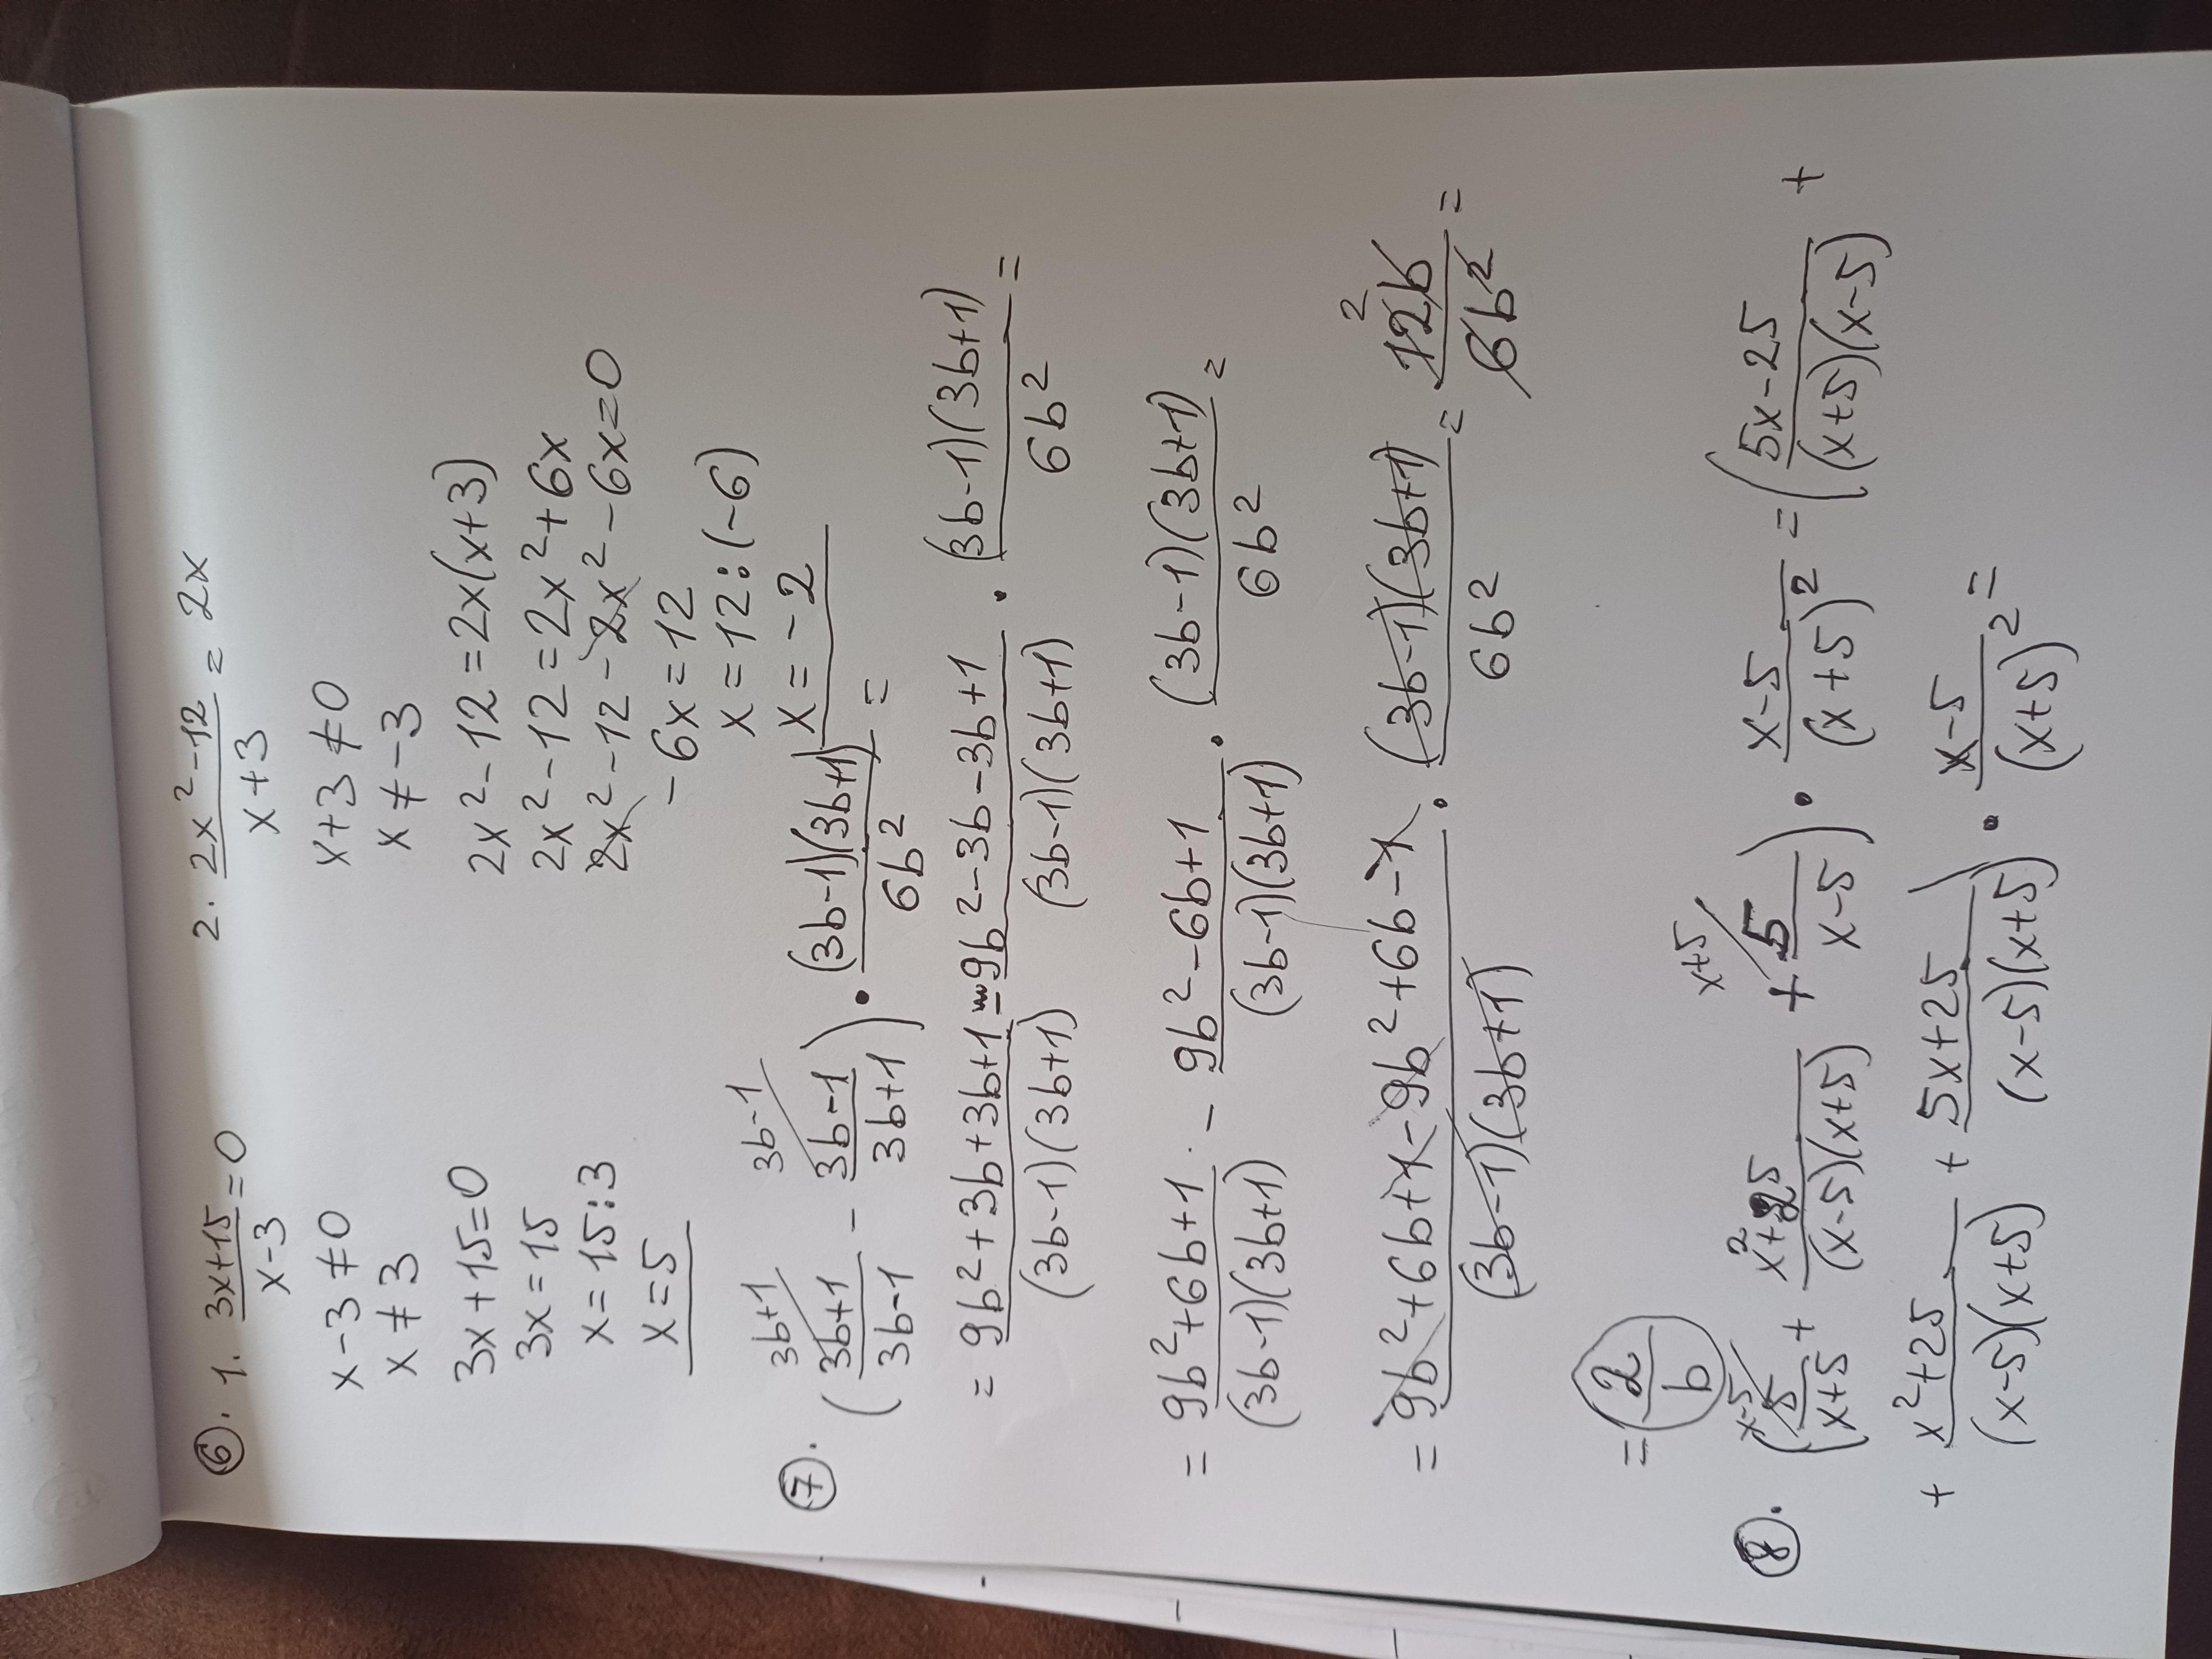 ⑥. 1. (3x+15)/(x-3) = 0    2. (2x²-12)/(x+3) = 2x
x-3≠0    x+3≠0
x≠3    x≠-3
3x+15=0    2x²-12=2x(x+3)
3x=15    2x²-12=2x²+6x
x=15:3    2x²-12-2x²-6x=0
x=5    -6x=12
x=12:(-6)
x=-2
⑦. ((3b+1)/(3b-1) ^(3b+1) - (3b-1)/(3b+1) ^(3b-1)) · ((3b-1)(3b+1))/(6b²) =
= (9b²+3b+3b+1)/((3b-1)(3b+1)) - (9b²-3b-3b+1)/((3b-1)(3b+1)) · ((3b-1)(3b+1))/(6b²) =
= (9b²+6b+1)/((3b-1)(3b+1)) - (9b²-6b+1)/((3b-1)(3b+1)) · ((3b-1)(3b+1))/(6b²) =
= (9b²+6b+1-9b²+6b-1)/((3b-1)(3b+1)) · ((3b-1)(3b+1))/(6b²) = (12b)/(6b²) ^2 =
= 2/b
⑧. (5/(x+5) ^(x-5) + (x²+25)/((x-5)(x+5)) + 5/(x-5) ^(x+5)) · (x-5)/(x+5)² = ((5x-25)/((x+5)(x-5)) +
+ (x²+25)/((x-5)(x+5)) + (5x+25)/((x-5)(x+5))) · (x-5)/(x+5)² =